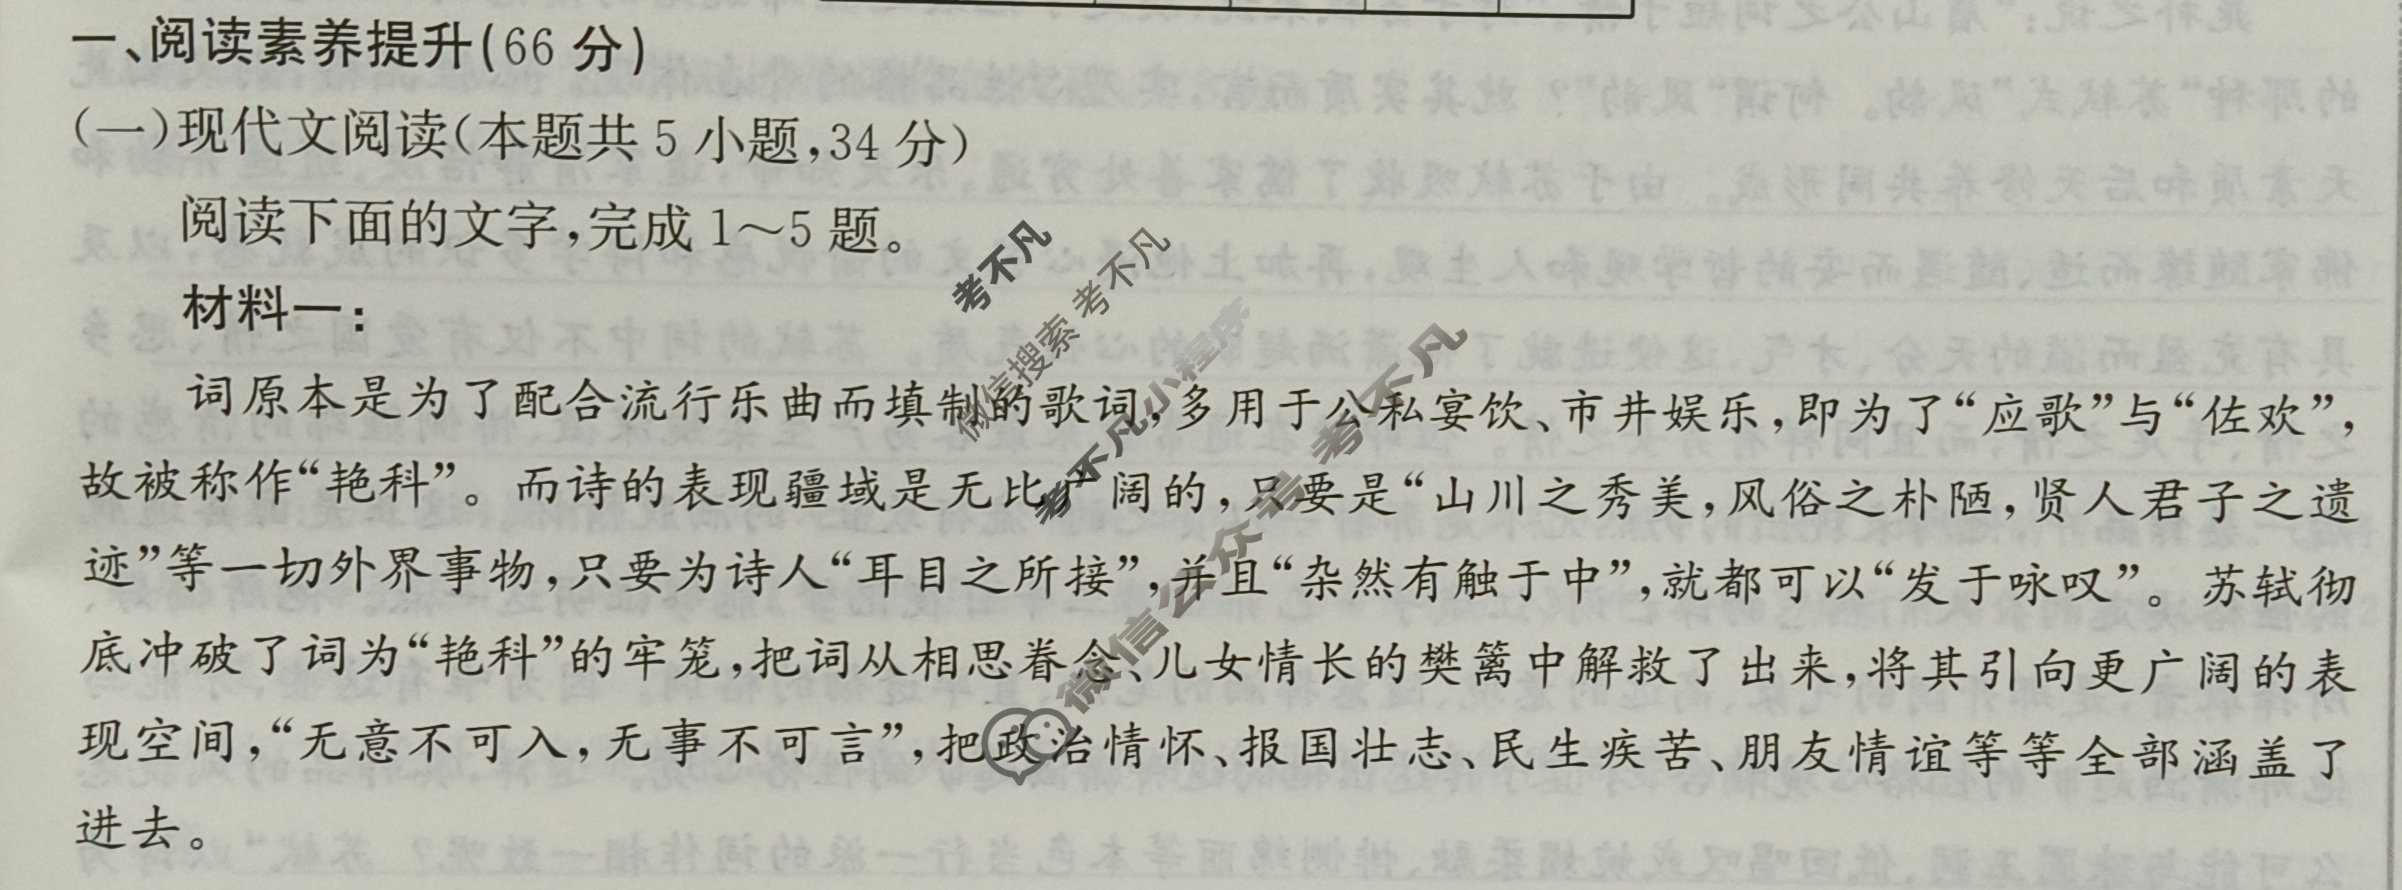 一、阅读素养提升(66 分)
(一)现代文阅读(本题共 5 小题,34 分)
阅读下面的文字,完成 1～5 题。
材料一:
词原本是为了配合流行乐曲而填制的歌词,多用于公私宴饮、市井娱乐,即为了“应歌”与“佐欢”,
故被称作“艳科”。而诗的表现疆域是无比广阔的,只要是“山川之秀美,风俗之朴陋,贤人君子之遗
迹”等一切外界事物,只要为诗人“耳目之所接”,并且“杂然有触于中”,就都可以“发于咏叹”。苏轼彻
底冲破了词为“艳科”的牢笼,把词从相思眷念、儿女情长的樊篱中解救了出来,将其引向更广阔的表
现空间,“无意不可入,无事不可言”,把政治情怀、报国壮志、民生疾苦、朋友情谊等等全部涵盖了
进去。
考不凡
微信搜索 考不凡
考不凡小程序
微信公众号 考不凡